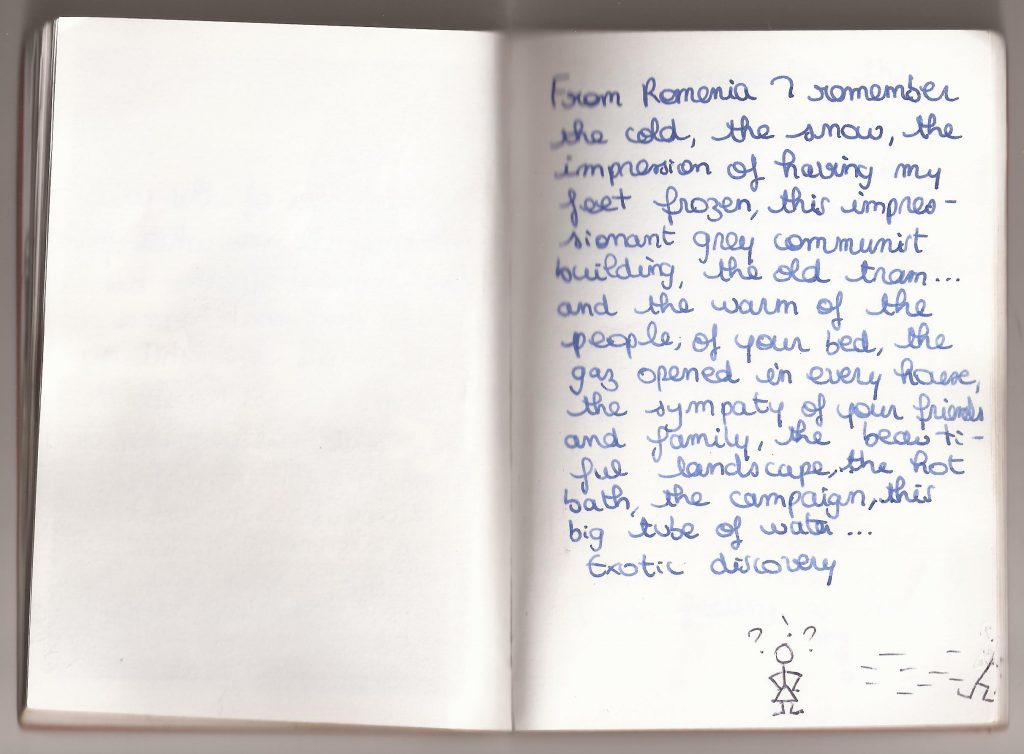 From Romenia I romember
the cold, the snow, the
impression of having my
feet frozen, this impres-
sionant grey communist
building, the old tram...
and the warm of the
people, of your bed, the
gaz opened in every house,
the sympaty of your friends
and family, the beauti-
ful landscape, the hot
bath, the campaign, this
big tube of water...
Exotic discovery
? ! ?